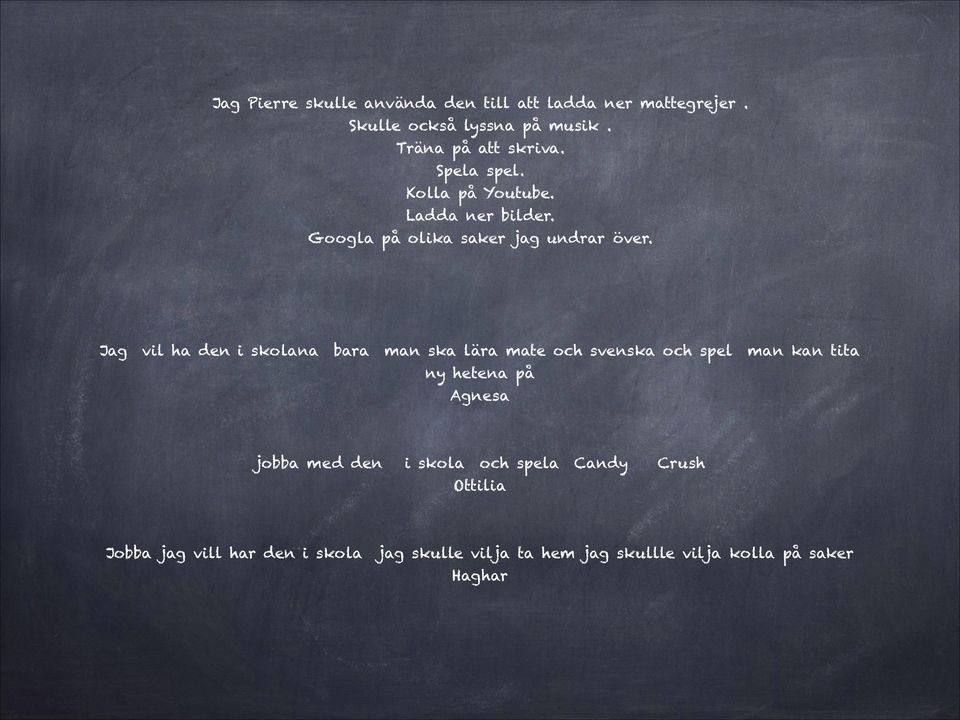 Jag Pierre skulle använda den till att ladda ner mattegrejer .
Skulle också lyssna på musik .
Träna på att skriva.
Spela spel.
Kolla på Youtube.
Ladda ner bilder.
Googla på olika saker jag undrar över.
Jag vil ha den i skolana bara man ska lära mate och svenska och spel man kan tita
ny hetena på
Agnesa
jobba med den i skola och spela Candy Crush
Ottilia
Jobba jag vill har den i skola jag skulle vilja ta hem jag skullle vilja kolla på saker
Haghar